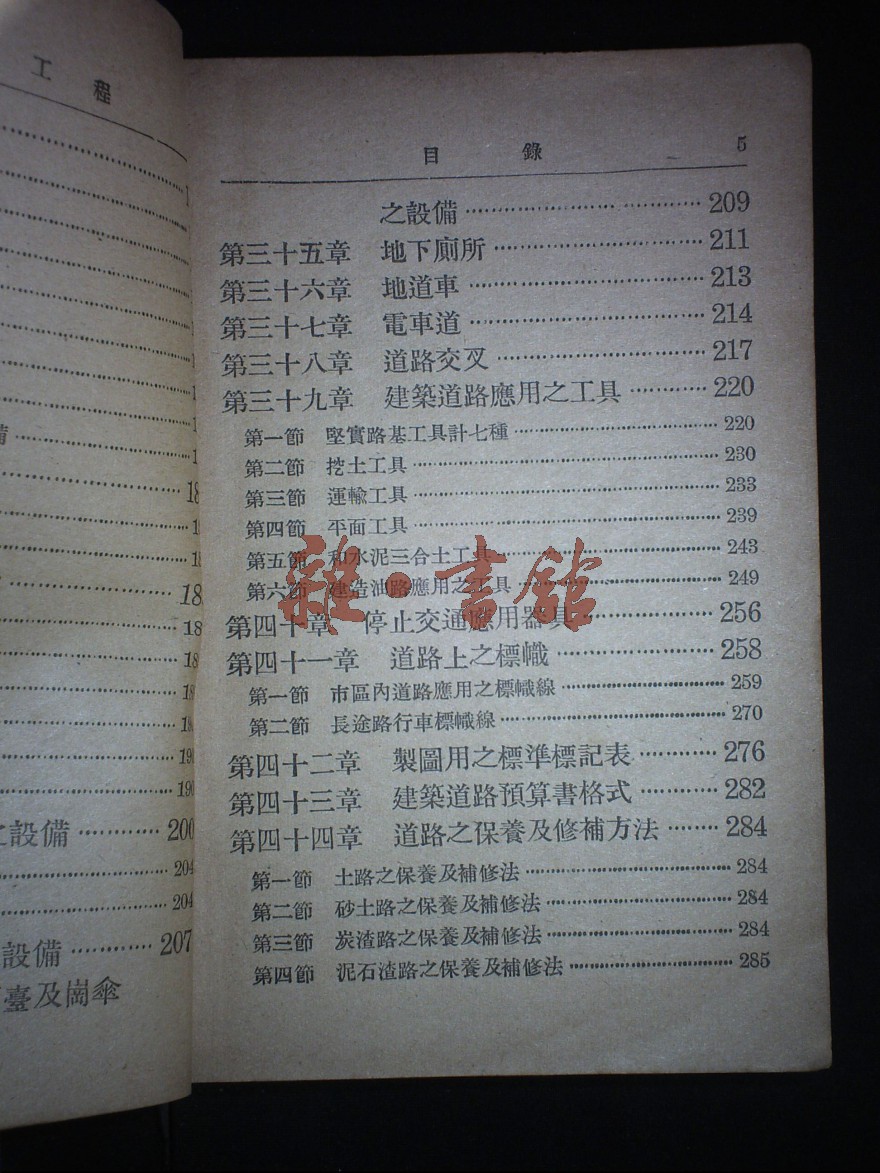 工程
備
18
18
18
190
190
之設備 200
204
204
設備 207
臺及崗傘
目錄 5
之設備 209
第三十五章 地下廁所 211
第三十六章 地道車 213
第三十七章 電車道 214
第三十八章 道路交叉 217
第三十九章 建築道路應用之工具 220
第一節 堅實路基工具計七種 220
第二節 挖土工具 230
第三節 運輸工具 233
第四節 平面工具 239
第五節 和水泥三合土工具 243
第六節 建造油路應用之工具 249
第四十章 停止交通應用器具 256
第四十一章 道路上之標幟 258
第一節 市區內道路應用之標幟線 259
第二節 長途路行車標幟線 270
第四十二章 製圖用之標準標記表 276
第四十三章 建築道路預算書格式 282
第四十四章 道路之保養及修補方法 284
第一節 土路之保養及補修法 284
第二節 砂土路之保養及補修法 284
第三節 炭渣路之保養及補修法 284
第四節 泥石渣路之保養及補修法 285
雜·書館